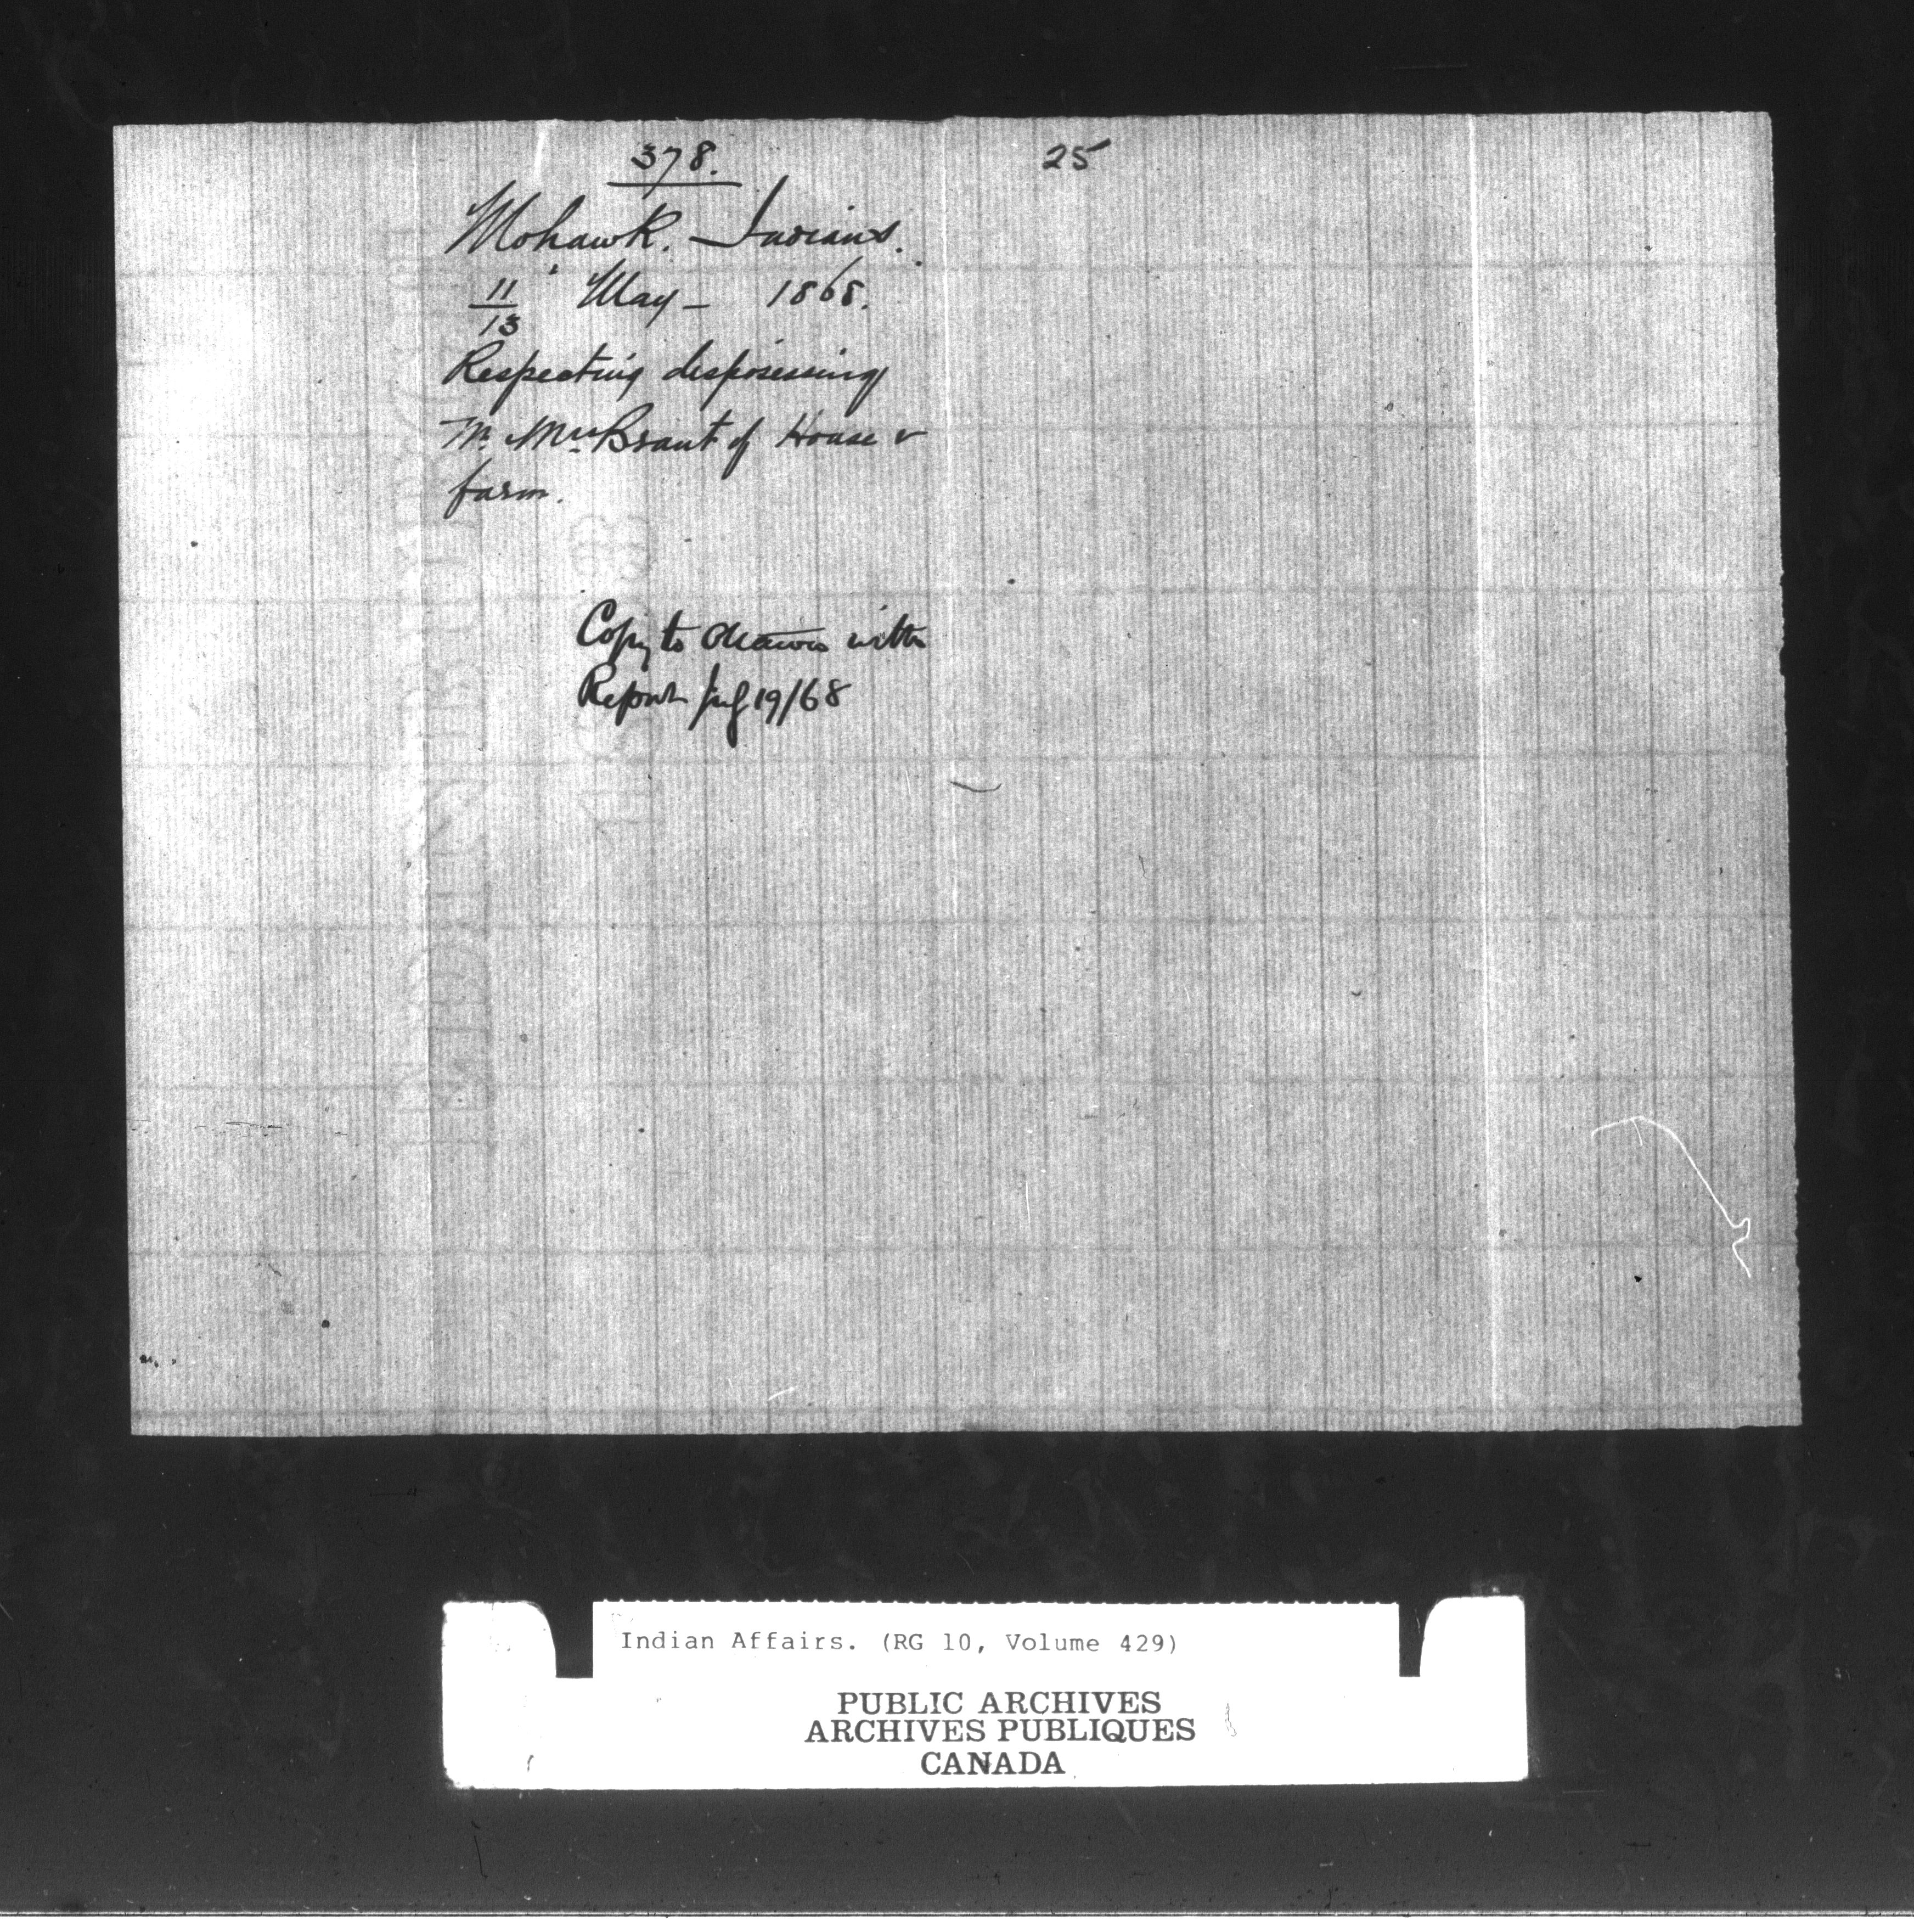 378.
25
Mohawk. Indians.
11 May - 1868.
13
Respecting disposessing
Mr. Mrs. Brant of House &
farm.
Copy to Ottawa with
Report July 19/68
Indian Affairs. (RG 10, Volume 429)
PUBLIC ARCHIVES
ARCHIVES PUBLIQUES
CANADA